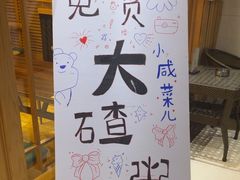 免费
大
碴
粥
小咸菜儿